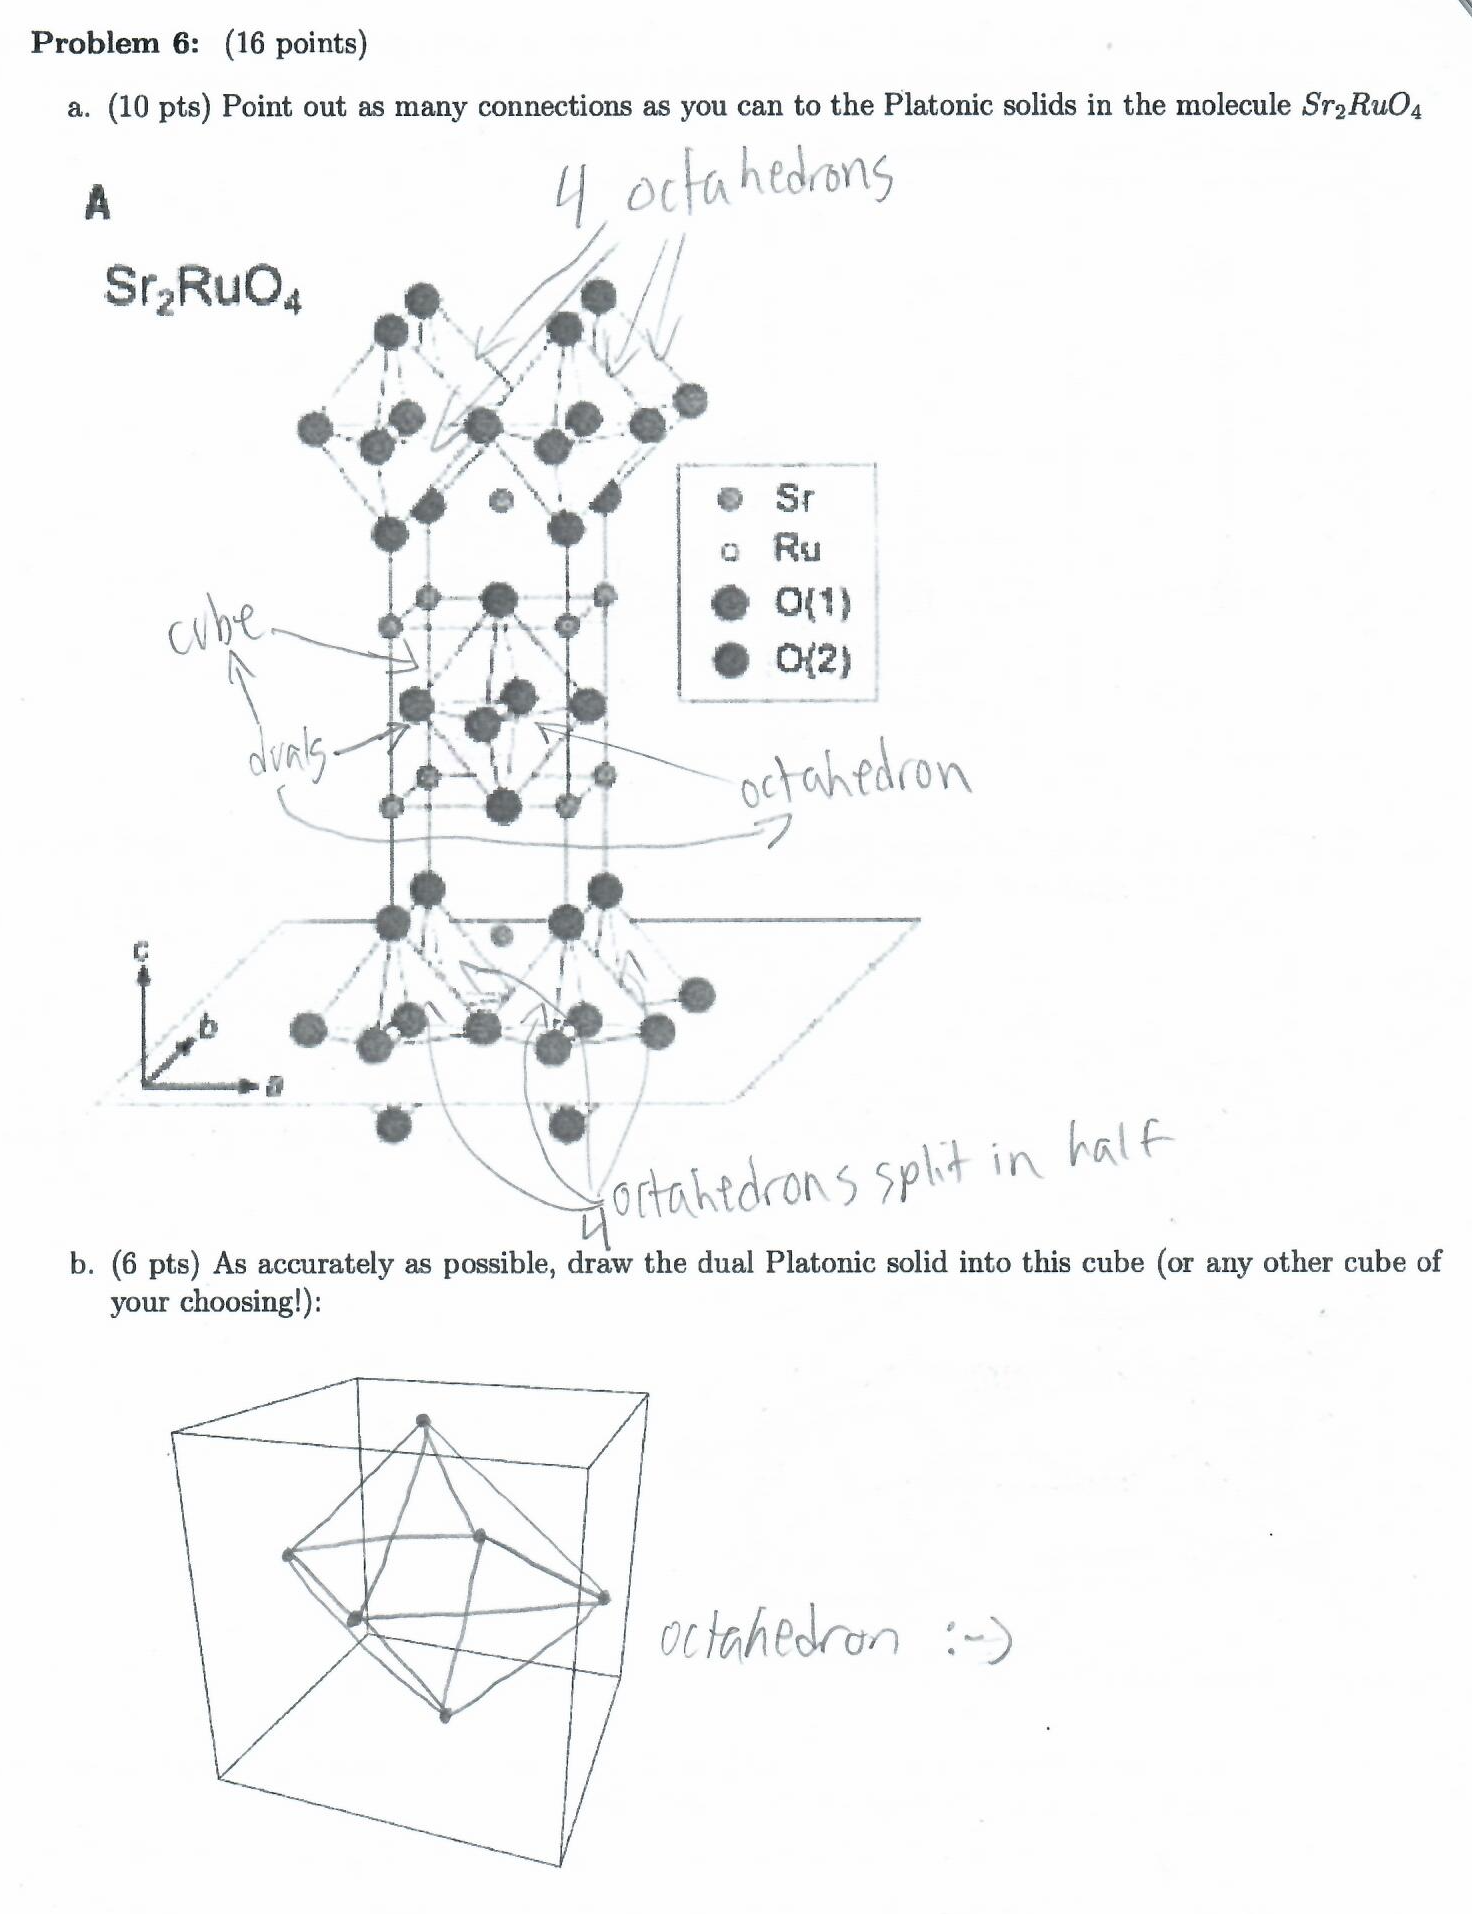 Problem 6: (16 points)
a. (10 pts) Point out as many connections as you can to the Platonic solids in the molecule Sr₂RuO₄
4 octahedrons
A
Sr₂RuO₄
Sr
Ru
O(1)
O(2)
cube
duals
octahedron
c
b
a
4 octahedrons split in half
b. (6 pts) As accurately as possible, draw the dual Platonic solid into this cube (or any other cube of
your choosing!):
octahedron :-)